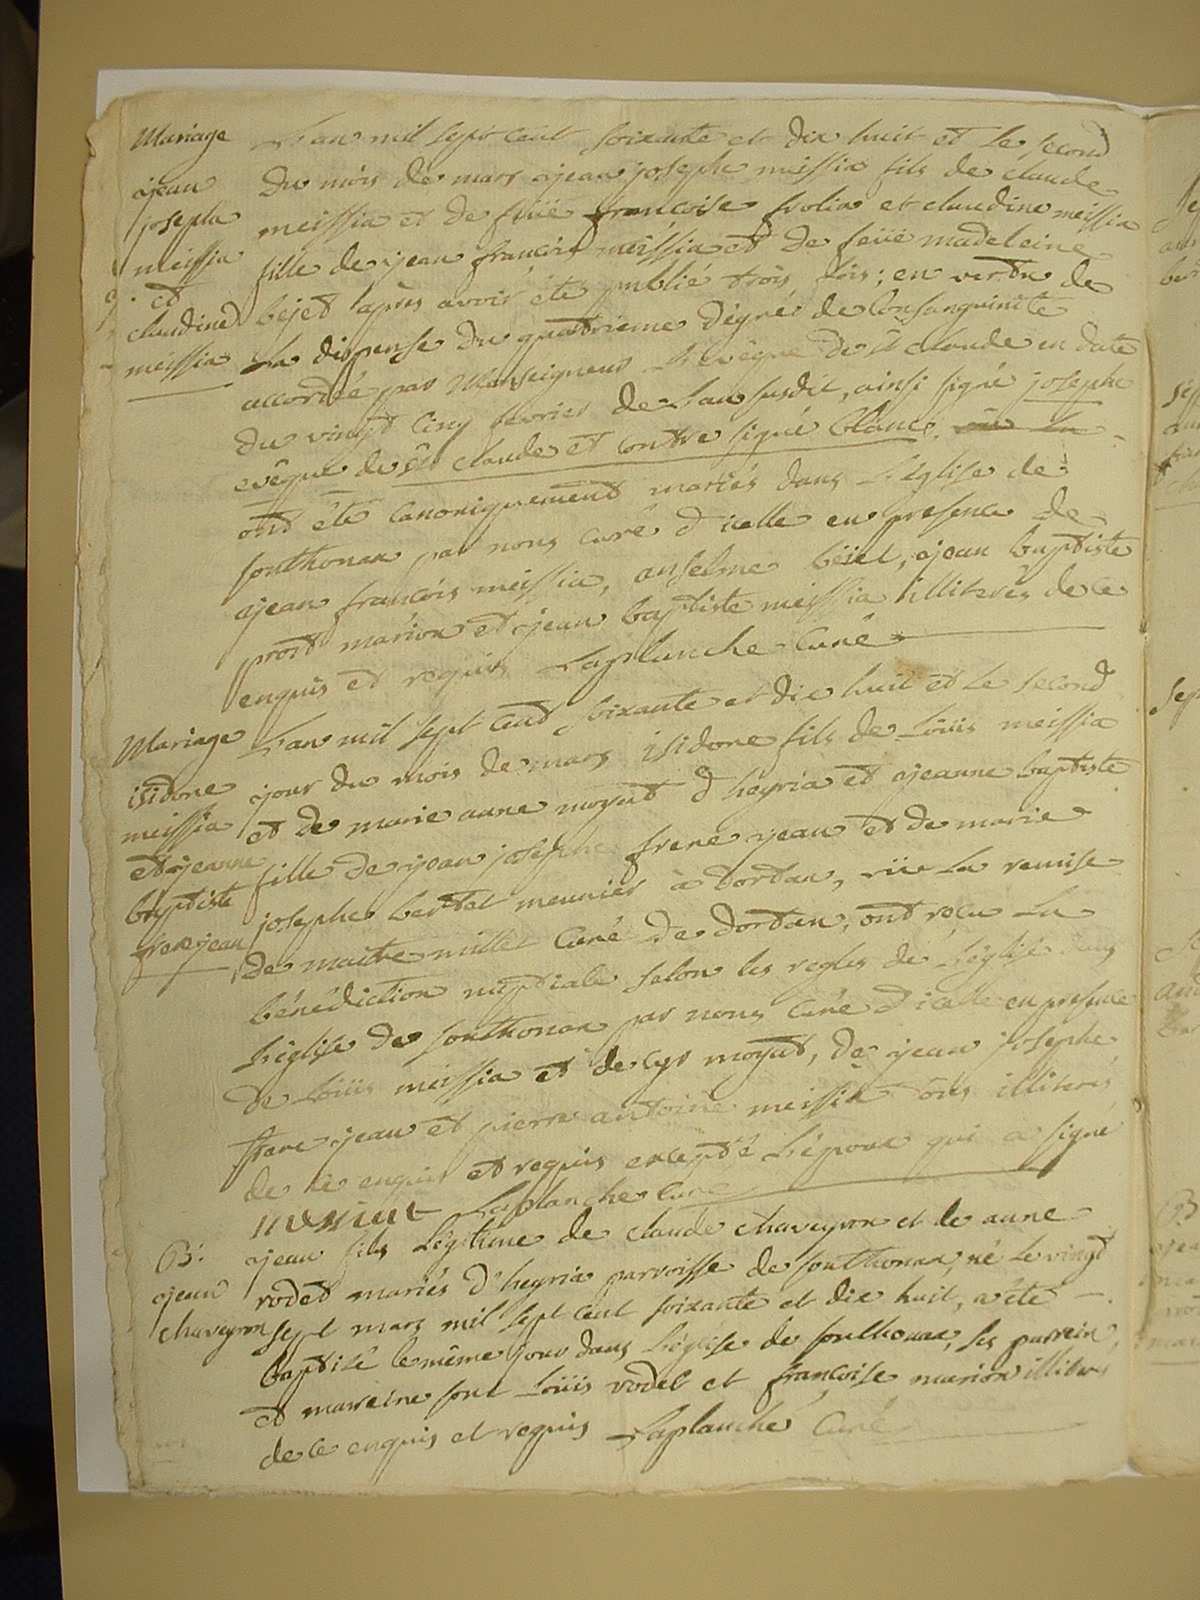 Mariage
jean
joseph
meissia
et
claudine
meissia
L'an mil sept cent soixante et dix huit et le second
du mois de mars jean joseph meissia fils de claude
meissia et de feüe francoise frolia et claudine meissia
fille de jean francois meissia et de feüe madeleine
bejet après avoir été publié trois fois; en vertu de
La dispense du quatrieme dégrés de Consanguinité
accordée par Monseigneur L'evêque de St claude en date
du vingt Cinq fevrier de L'an susdit, ainsi signé josephe
evêque de St claude et contre signé blanc,
ont été Canoniquement mariés dans L'église de
southonax par nous Curé d'icelle en presence de
jean francois meissia, anselme beiet, jean baptiste
prost marion et jean baptiste meissia illiterés de ce
enquis et requis Laplanche Curé
Mariage
isidore
meissia
et jeanne
baptiste
frerejean
L'an mil sept cent soixante et dix huit et le second
jour du mois de mars isidore fils de Loüis meissia
et de marie anne moyat d'heyria et jeanne baptiste
fille de jean josephe frere jean et de marie
josephe bertet meunier à dortan, vüe La remise
de maitre millet Curé de dortan, ont reçu La
bénédiction nuptiale selon les regles de L'église dans
L'église de southonax par nous Curé d'icelle en presence
de Loüis meissia et de Cyr moyat, de jean josephe
frere jean et pierre antoine meissia tous illiterés
de ce enquis et requis excepté L'époux qui a signé
messiat Laplanche Curé
B.
jean
chaveyron
jean fils Légitime de claude chaveyron et de anne
rodet mariés d'heyria parroisse de southonax, né le vingt
sept mars mil sept cent soixante et dix huit, a été
baptisé le même jour dans L'église de southonax, ses parrein
et marreine sont Loüis rodet et françoise marion illiterés
de ce enquis et requis Laplanche Curé